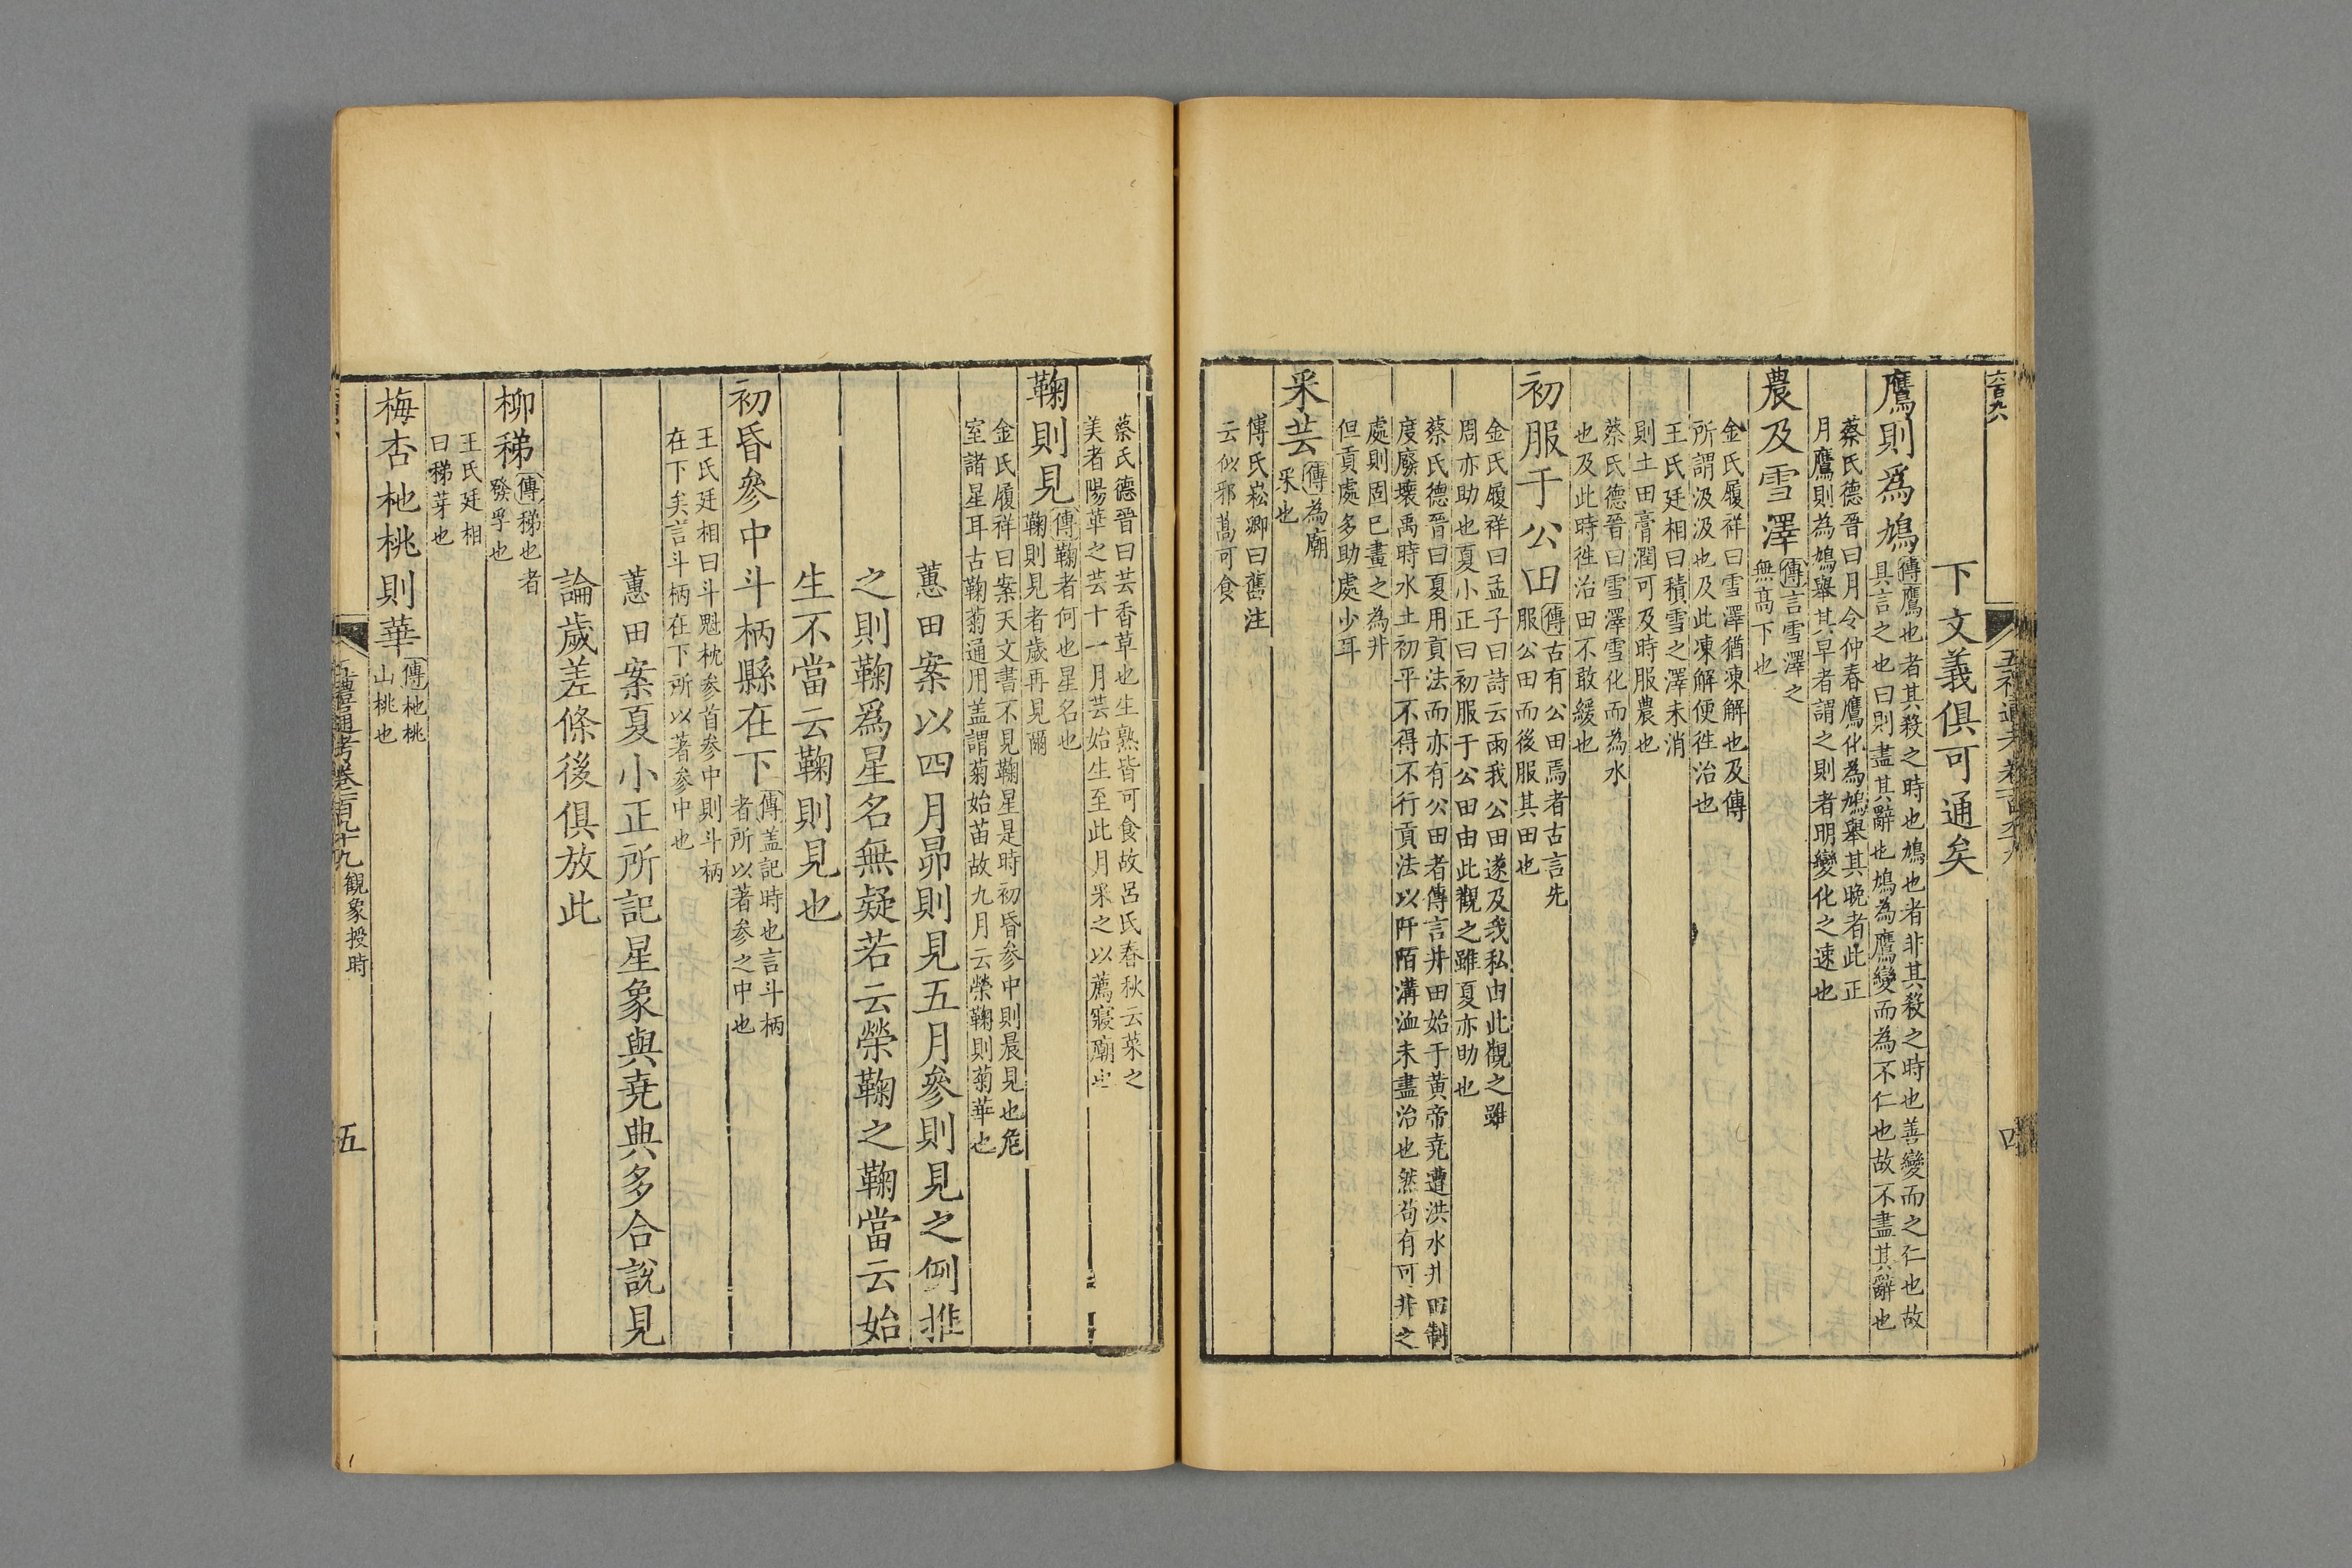 六百九六
下文義俱可通矣
鷹則爲鳩傳鷹也者其殺之時也鳩也者非其殺之時也善變而之仁也故
具言之也曰則盡其辭也鳩為鷹變而為不仁也故不盡其辭也
蔡氏德晉曰月令仲春鷹化為鳩舉其晚者此正
月鷹則為鳩舉其早者謂之則者明變化之速也
農及雪澤傳言雪澤之
無高下也
金氏履祥曰雪澤猶凍解也及傳
所謂汲汲也及此凍解便徃治也
王氏廷相曰積雪之澤未消
則土田膏潤可及時服農也
蔡氏德晉曰雪澤雪化而為水
也及此時徃治田不敢緩也
初服于公田傳古有公田焉者古言先
服公田而後服其田也
金氏履祥曰孟子曰詩云雨我公田遂及我私由此觀之雖
周亦助也夏小正曰初服于公田由此觀之雖夏亦助也
蔡氏德晉曰夏用貢法而亦有公田者傳言井田始于黃帝堯遭洪水井田制
度廢壞禹時水土初平不得不行貢法以阡陌溝洫未盡治也然苟有可井之
處則固已畫之為井
但貢處多助處少耳
采芸傳為廟
采也
傅氏崧卿曰舊注
云似邪蒿可食
四
蔡氏德晉曰芸香草也生熟皆可食故呂氏春秋云菜之
美者陽華之芸十一月芸始生至此月采之以薦寢廟也
鞠則見傳鞠者何也星名也
鞠則見者歲再見爾
金氏履祥曰案天文書不見鞠星是時初昏参中則晨見也危
室諸星耳古鞠菊通用盖謂菊始苗故九月云榮鞠則菊華也
蕙田案以四月昴則見五月參則見之例推
之則鞠爲星名無疑若云榮鞠之鞠當云始
生不當云鞠則見也
初昏參中斗柄縣在下傳盖記時也言斗柄
者所以著参之中也
王氏廷相曰斗魁枕参首参中則斗柄
在下矣言斗柄在下所以著参中也
蕙田案夏小正所記星象與堯典多合說見
論歲差條後俱放此
柳稊傳稊也者
發孚也
王氏廷相
曰稊芽也
梅杏杝桃則華傳杝桃
山桃也
五禮通考卷一百九十九 觀象授時
五